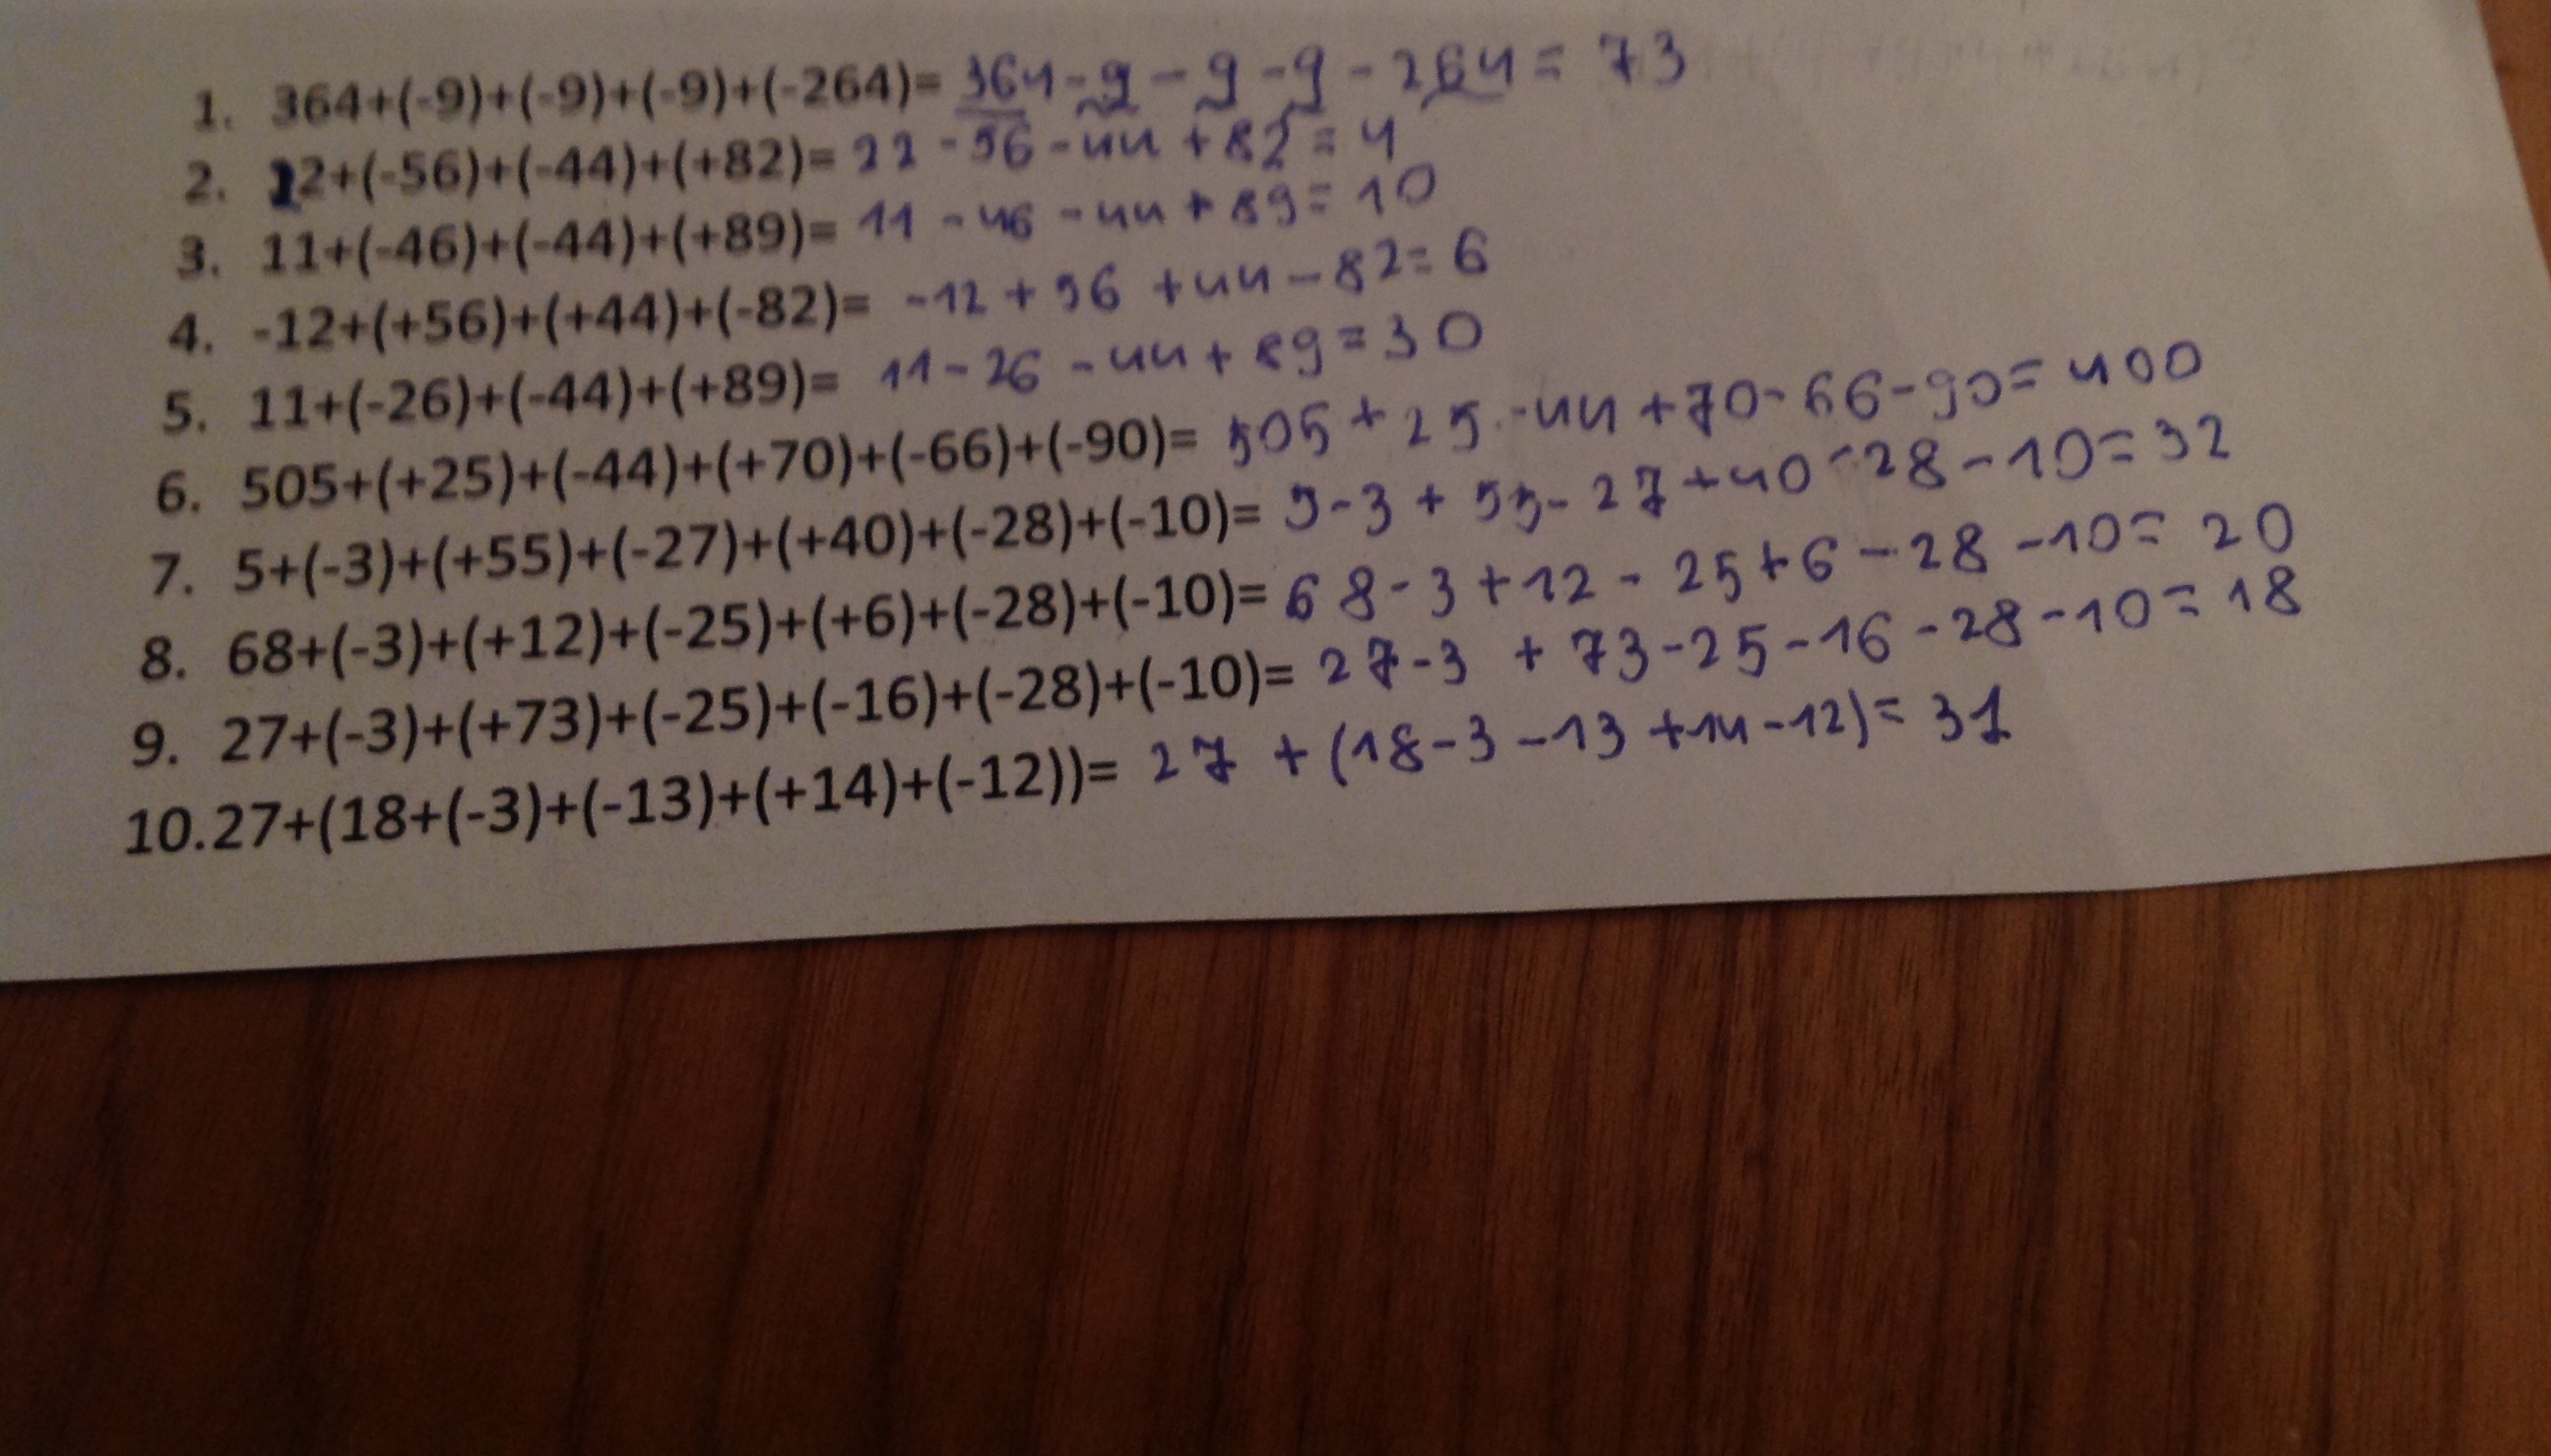 1. 364+(-9)+(-9)+(-9)+(-264)= 364-9-9-9-264= 73
2. 22+(-56)+(-44)+(+82)= 22-56-44+82= 4
3. 11+(-46)+(-44)+(+89)= 11-46-44+89= 10
4. -12+(+56)+(+44)+(-82)= -12+56+44-82= 6
5. 11+(-26)+(-44)+(+89)= 11-26-44+89=30
6. 505+(+25)+(-44)+(+70)+(-66)+(-90)= 505+25-44+70-66-90= 400
7. 5+(-3)+(+55)+(-27)+(+40)+(-28)+(-10)= 5-3+55-27+40-28-10=32
8. 68+(-3)+(+12)+(-25)+(+6)+(-28)+(-10)= 68-3+12-25+6-28-10= 20
9. 27+(-3)+(+73)+(-25)+(-16)+(-28)+(-10)= 27-3+73-25-16-28-10=18
10.27+(18+(-3)+(-13)+(+14)+(-12))= 27+(18-3-13+14-12)= 31